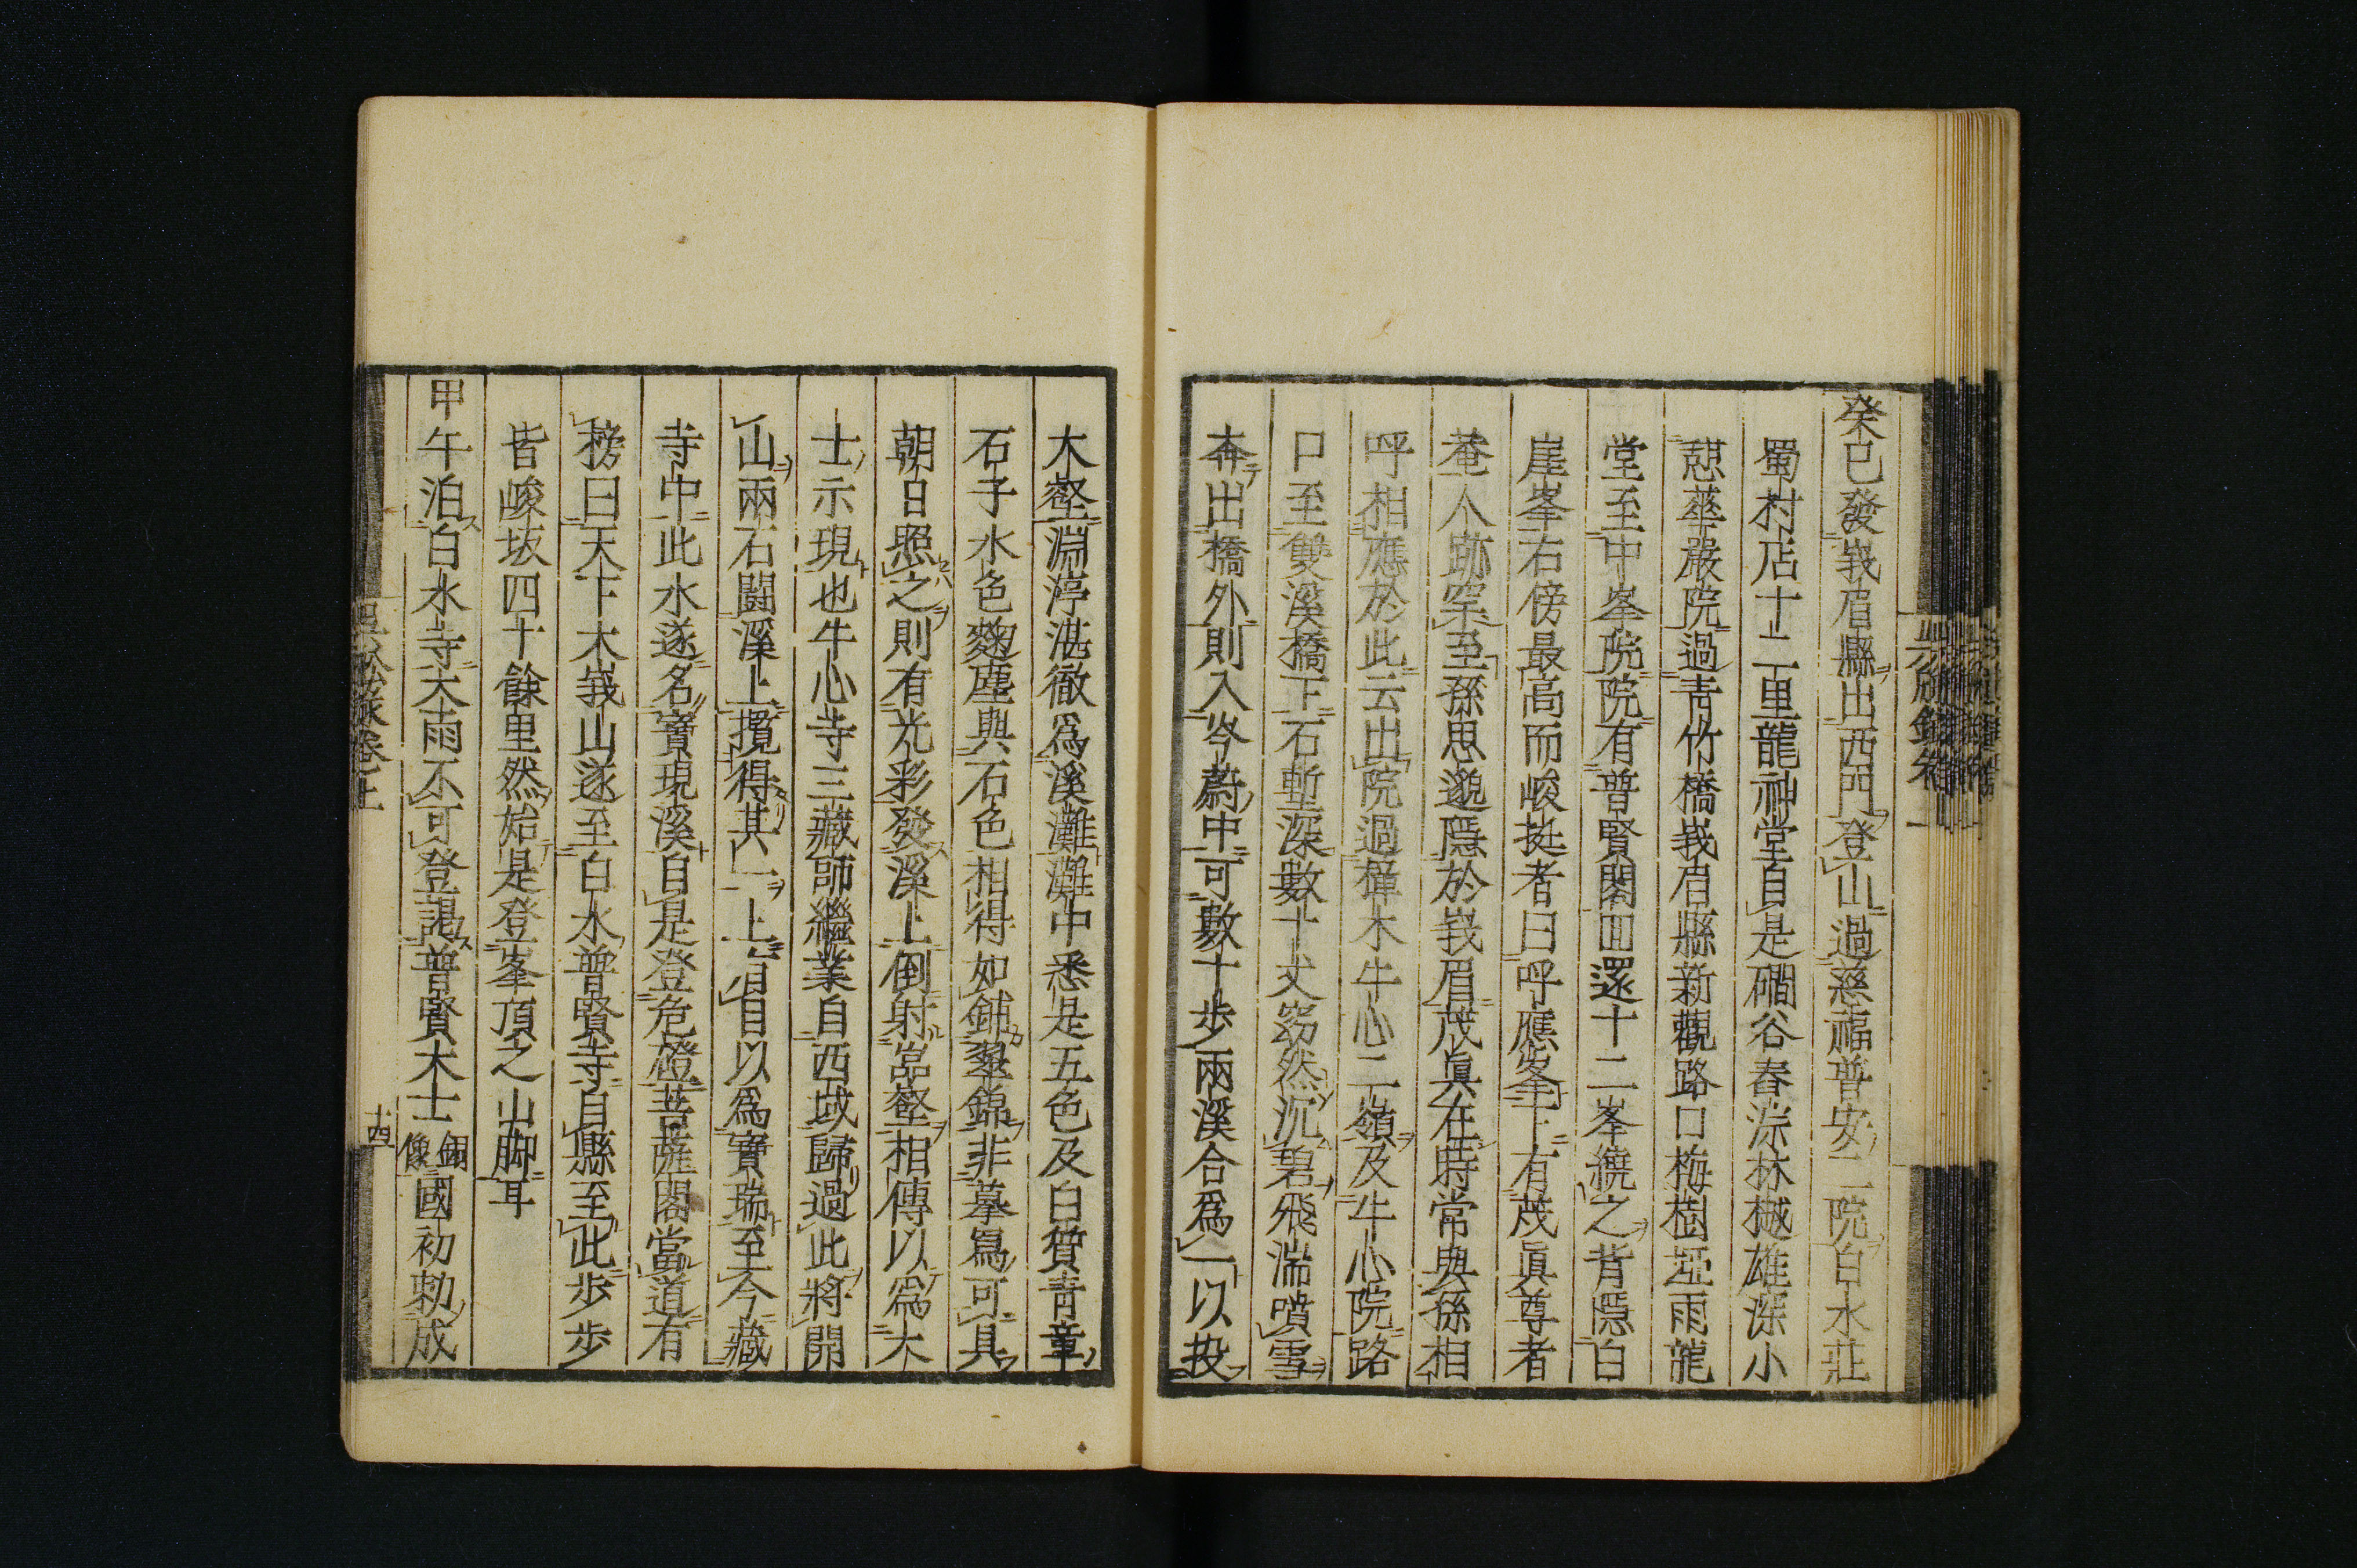 癸巳發峩眉縣出西門登山過慈福普安二院白水莊
蜀村店十二里龍神堂自是磵谷舂淙林樾雄深小
憩華嚴院過青竹橋峩眉縣新觀路口梅樹埡兩龍
堂至中峯院院有普賢閣回還十二峯繞之背隱白
崖峯右傍最高而峻挺者曰呼應峯下有茂眞尊者
菴人跡罕至孫思邈隱於峩眉茂眞在時常與孫相
呼相應於此云出院過樟木牛心二嶺及牛心院路
口至雙溪橋下石塹深數十丈窈然沉碧飛湍噴雪
奔出橋外則入岑蔚中可數十步兩溪合爲一以投
大壑淵渟湛徹爲溪灘灘中悉是五色及白質青章
石子水色麴塵與石色相得如鋪翠錦非摹寫可具
朝日照之則有光彩發溪上倒射嵓壑相傳以爲大
士示現也牛心寺三藏師繼業自西域歸過此將開
山兩石鬪溪上攬得其一上有目以爲寶瑞至今藏
寺中此水遂名寶現溪自是登危磴菩薩閣當道有
榜曰天下大峩山遂至白水普賢寺自縣至此步步
皆峻坂四十餘里然始是登峯頂之山脚耳
甲午泊白水寺大雨不可登謁普賢大士銅像國初勅成
呉船録卷上
十四